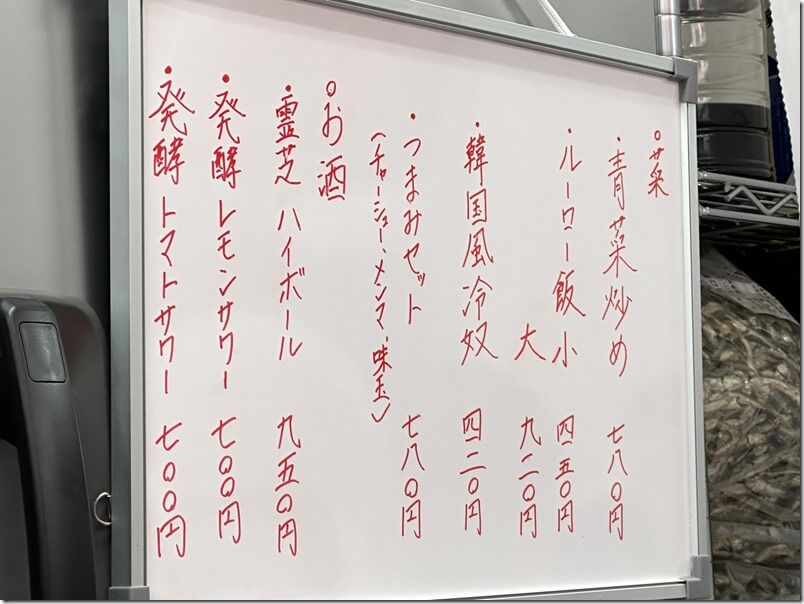 ○菜
・青菜炒め 七八〇円
・ルーロー飯小 四五〇円
大 九二〇円
・韓国風冷奴 四二〇円
・つまみセット 七八〇円
(チャーシュー・メンマ・味玉)
○お酒
・霊芝ハイボール 九五〇円
・発酵レモンサワー 七〇〇円
・発酵トマトサワー 七〇〇円